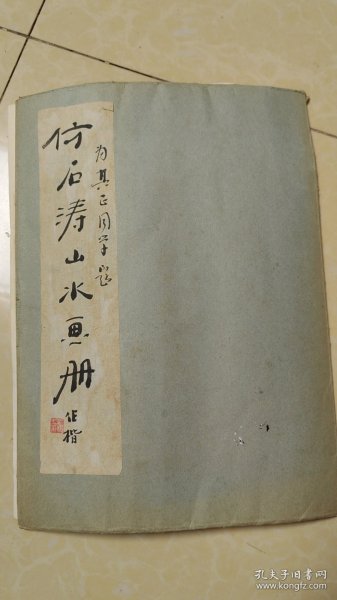 仿石涛山水画册
为其正同学题
作楷
孔夫子旧书网
www.kongfz.com